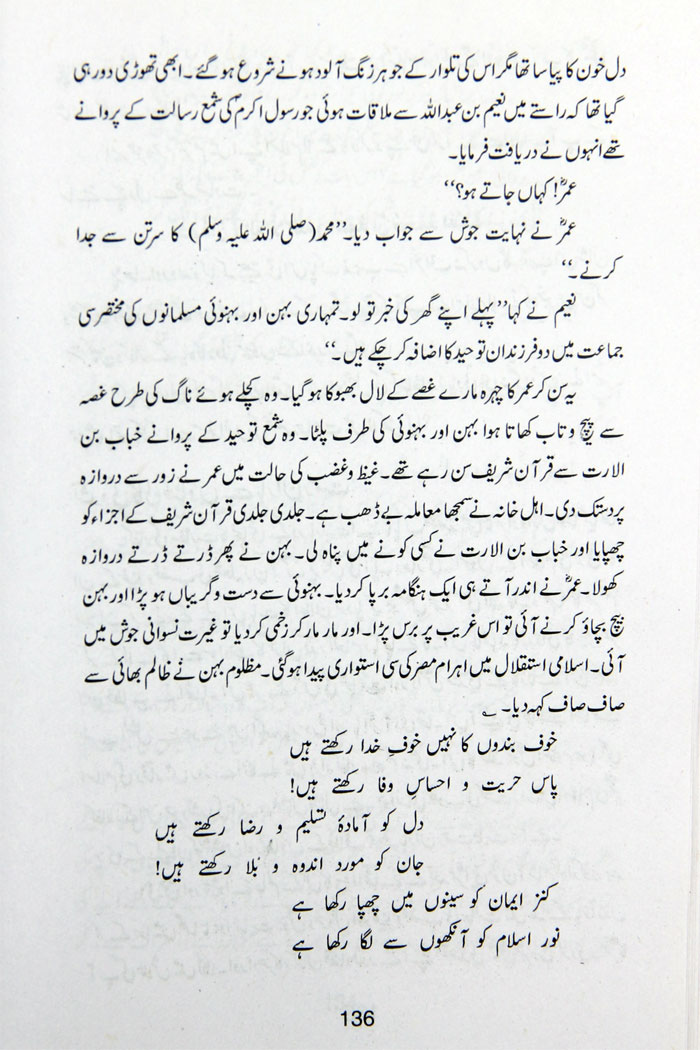 دل خون کا پیاسا تھا مگر اس کی تلوار کے جوہر زنگ آلود ہونے شروع ہو گئے۔ ابھی تھوڑی دور ہی
گیا تھا کہ راستے میں نعیم بن عبداللہ سے ملاقات ہوئی جو رسول اکرمؐ کی شمع رسالت کے پروانے
تھے انہوں نے دریافت فرمایا۔
عمرؓ! کہاں جاتے ہو؟‘‘
عمرؓ نے نہایت جوش سے جواب دیا۔’’محمد(صلی اللہ علیہ وسلم) کا سرتن سے جدا
کرنے۔‘‘
نعیم نے کہا’’پہلے اپنے گھر کی خبر تو لو۔ تمہاری بہن اور بہنوئی مسلمانوں کی مختصر سی
جماعت میں دو فرزندان توحید کا اضافہ کر چکے ہیں۔‘‘
یہ سن کر عمر کا چہرہ مارے غصے کے لال بھبوکا ہو گیا۔ وہ کچلے ہوئے ناگ کی طرح غصہ
سے پیچ و تاب کھاتا ہوا بہن اور بہنوئی کی طرف پلٹا۔ وہ شمع توحید کے پروانے خباب بن
الارت سے قرآن شریف سن رہے تھے۔ غیظ و غضب کی حالت میں عمر نے زور سے دروازہ
پر دستک دی۔ اہل خانہ نے سمجھا معاملہ بے ڈھب ہے۔ جلدی جلدی قرآن شریف کے اجزاء کو
چھپایا اور خباب بن الارت نے کسی کونے میں پناہ لی۔ بہن نے پھر ڈرتے ڈرتے دروازہ
کھولا۔ عمرؓ نے اندر آتے ہی ایک ہنگامہ برپا کر دیا۔ بہنوئی سے دست و گریباں ہو پڑا اور بہن
بیچ بچاؤ کرنے آئی تو اس غریب پر برس پڑا۔ اور مار مار کر زخمی کر دیا تو غیرت نسوانی جوش میں
آئی۔ اسلامی استقلال میں اہرام مصر کی سی استواری پیدا ہو گئی۔ مظلوم بہن نے ظالم بھائی سے
صاف صاف کہہ دیا۔ ؎
خوف بندوں کا نہیں خوفِ خدا رکھتے ہیں
پاس حریت و احساسِ وفا رکھتے ہیں!
دل کو آمادۂ تسلیم و رضا رکھتے ہیں
جان کو مورد اندوہ و بلا رکھتے ہیں!
کنز ایمان کو سینوں میں چھپا رکھا ہے
نور اسلام کو آنکھوں سے لگا رکھا ہے
136